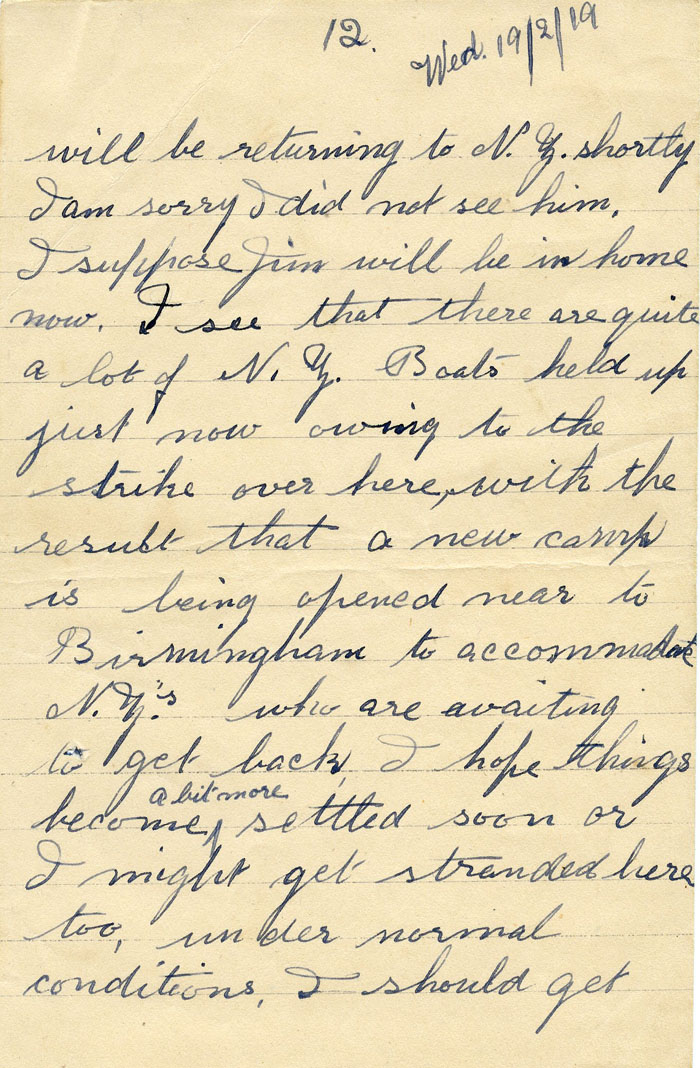 12.
Wed. 19/2/19
will be returning to N. Z. shortly
I am sorry I did not see him.
I suppose Jim will be in home
now. I see that there are quite
a lot of N. Z. Boats held up
just now owing to the
strike over here, with the
result that a new camp
is being opened near to
Birmingham to accommodate
N.Z.'s who are awaiting
to get back, I hope things
a bit more
become, settled soon or
I might get stranded here
too, under normal
conditions, I should get